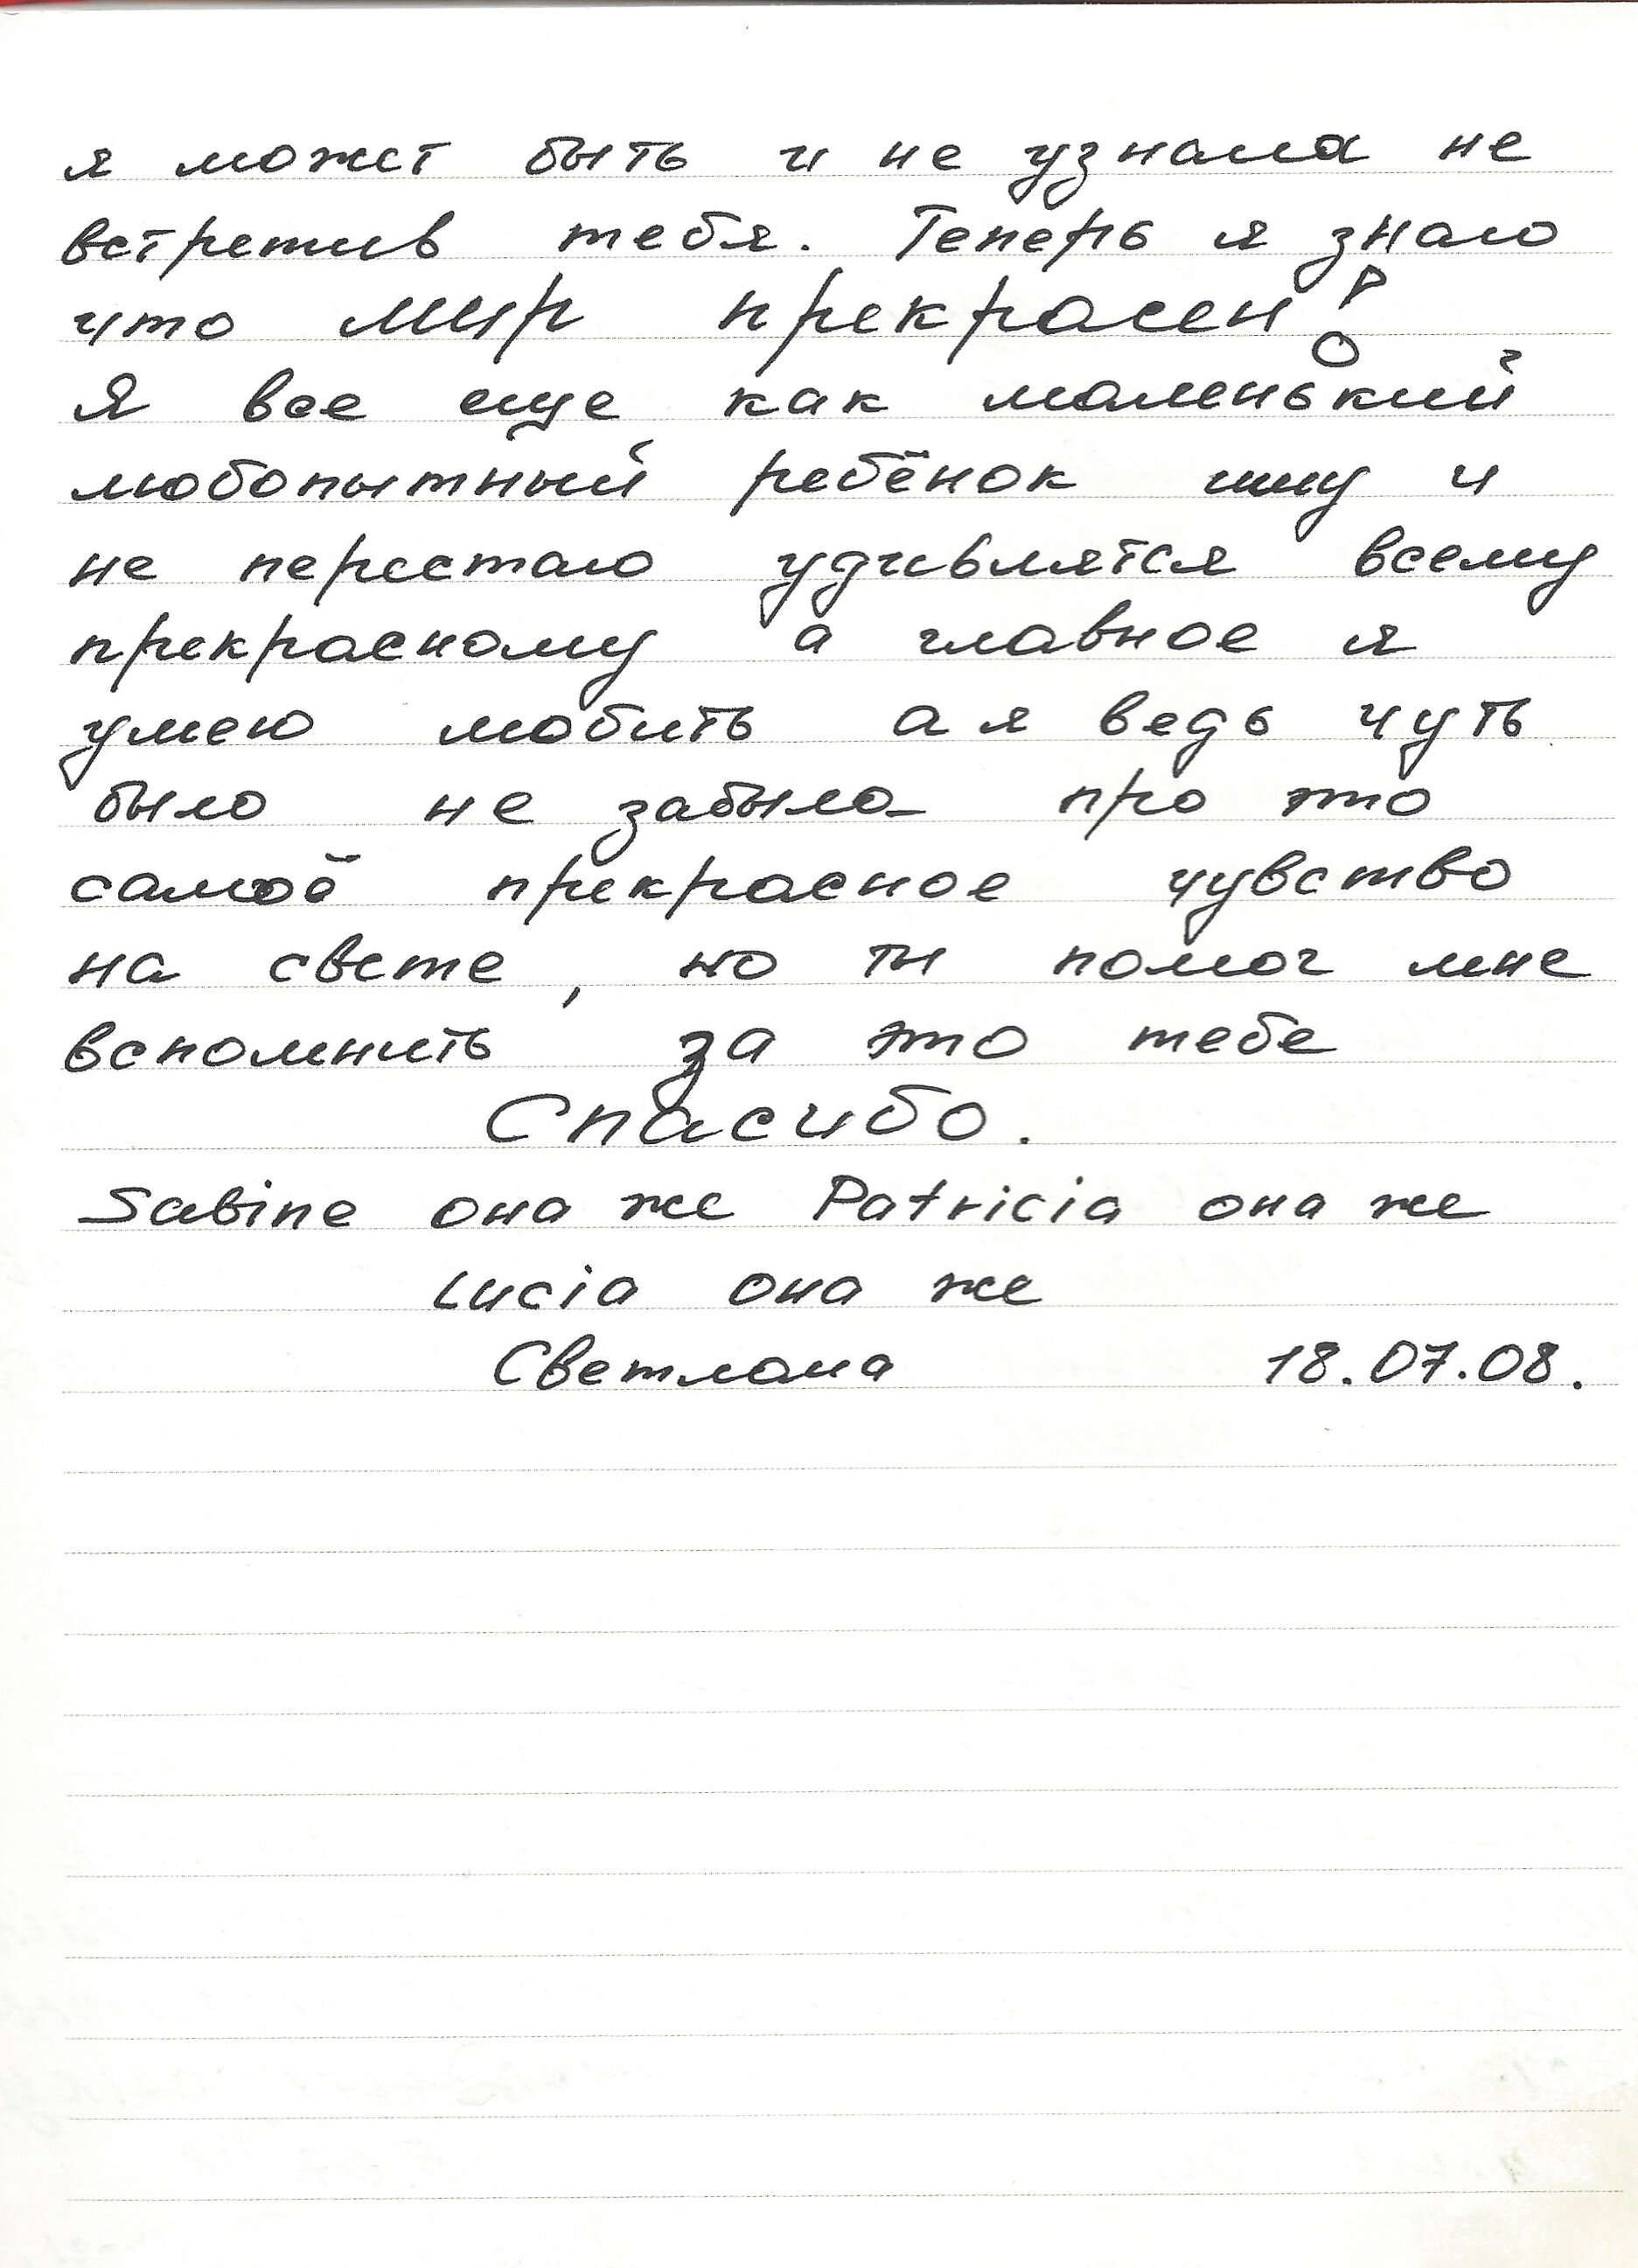 я может быть и не узнала не
встретив тебя. Теперь я знаю
что мир прекрасен!
Я все еще как маленький
любопытный ребёнок ищу и
не перестаю удивлятся всему
прекрасному а главное я
умею любить а я ведь чуть
было не забыла про это
самоё прекрасное чувство
на свете, но ты помог мне
вспомнить за это тебе
Спасибо.
Sabine она же Patricia она же
Lucia она же
Светлана 18.07.08.